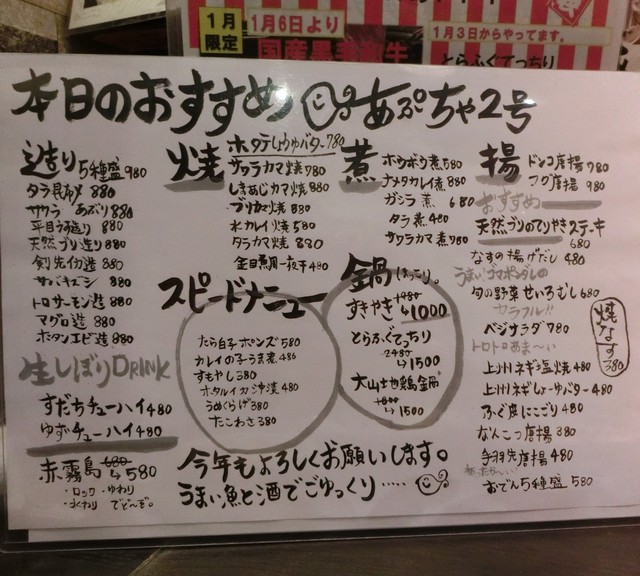 1月
限定
1月6日より
国産黒毛和牛
1月3日からやってます。
とらふぐてっちり
本日のおすすめ あぷちゃ2号
造り 5種盛 980
タラ昆布〆 880
サワラ あぶり 880
平目うす造り 880
天然ブリ造り 880
剣先イカ造 880
サバキズシ 880
トロサーモン造 880
マグロ造 880
ボタンエビ造 880
生しぼりDRINK
すだちチューハイ 480
ゆずチューハイ 480
赤霧島 680→580
・ロック ・ゆわり
・水わり でどーぞ。
焼
ホタテしょうゆバター 780
サワラカマ焼 780
しまあじカマ焼 880
ブリカマ焼 880
水カレイ焼 580
タラカマ焼 880
金目煮用一夜干 480
スピードメニュー
たら白子ポンズ 580
カレイの子うま煮 480
すもやし 380
ホタルイカ沖漬 480
うめくらげ 380
たこわさ 380
煮
ホウボウ煮 580
ナメタカレイ煮 880
ガシラ煮 680
タラ煮 480
サワラカマ煮 780
鍋 ほっこり。
すきやき 1480→1000
とらふぐてっちり
2480→1500
大山地鶏鍋
1800→1500
揚
ドンコ唐揚 780
フグ唐揚 980
おすすめ
天然ブリのてりやきステーキ
680
なすの揚げだし 480
うまい!ゴマポンダレの
旬の野菜せいろむし 680
カラフル!!
ベジサラダ 780
トロトロあま〜い
焼なす 380
上州ネギ塩焼 480
上州ネギしょーゆバター 480
ふぐ皮にこごり 480
なんこつ唐揚 380
手羽先唐揚 480
おでん5種盛 580
今年もよろしくお願いします。
うまい魚と酒でごゆっくり‥‥‥